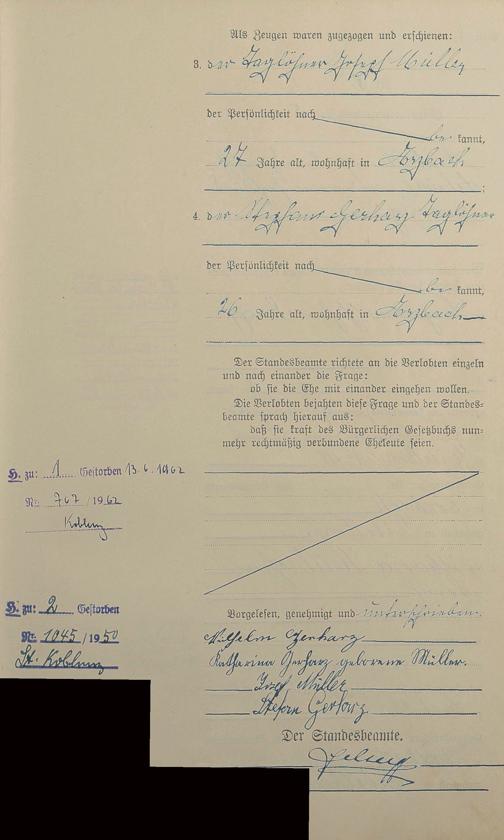 Als Zeugen waren zugezogen und erschienen:
3. der Taglöhner Joseph Müller
der Persönlichkeit nach
be kannt,
27 Jahre alt, wohnhaft in Arzbach
;
4. der Stephan Gerharz Taglöhner
der Persönlichkeit nach
be kannt,
26 Jahre alt, wohnhaft in Arzbach
Der Standesbeamte richtete an die Verlobten einzeln
und nach einander die Frage:
ob sie die Ehe mit einander eingehen wollen.
Die Verlobten bejahten diese Frage und der Standes-
beamte sprach hierauf aus:
daß sie kraft des Bürgerlichen Gesetzbuchs nun-
mehr rechtmäßig verbundene Eheleute seien.
H. zu: 1 Gestorben 13.6.1962
Nr. 767/1962
Koblenz
H. zu: 2 Gestorben
Nr. 1045/1950
St. Koblenz
Vorgelesen, genehmigt und unterschrieben.
Wilhelm Gerharz
Katharina Gerharz geborene Müller.
Josef Müller
Stefan Gerharz
Der Standesbeamte.